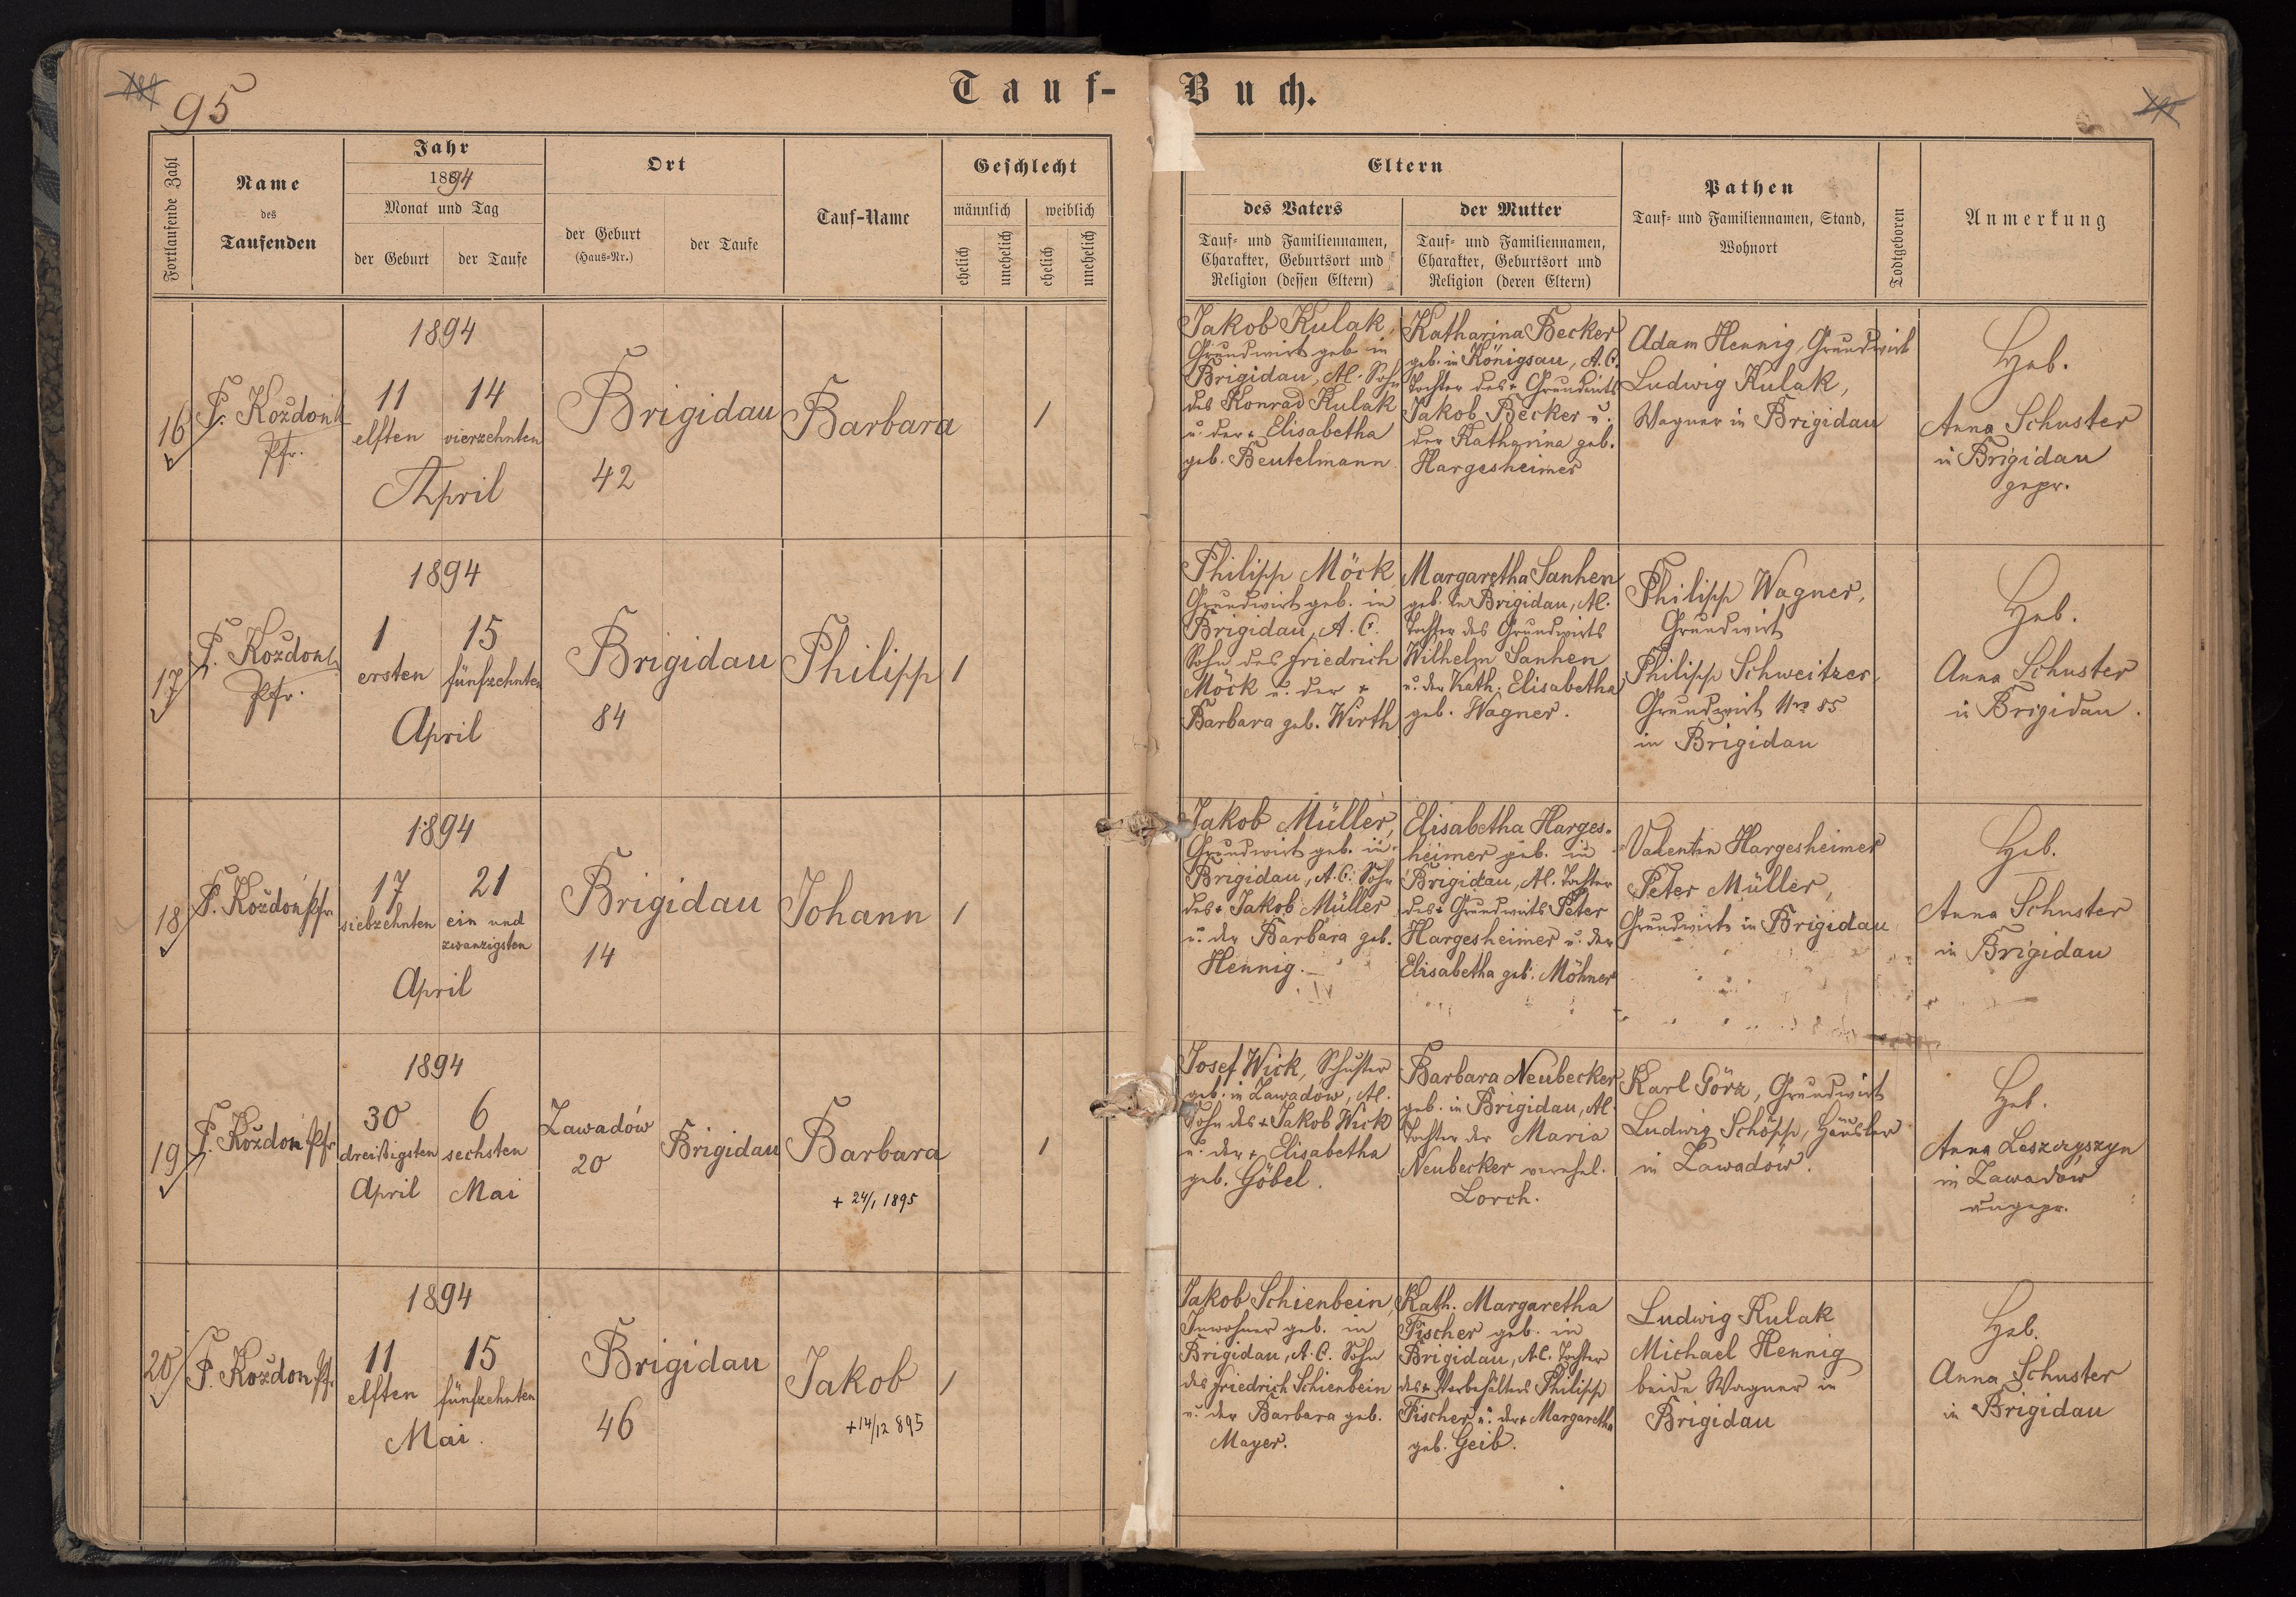 95
Tauf-Buch.
Fortlaufende Zahl
Name
des
Taufenden
Jahr
1894
Monat und Tag
der Geburt
der Taufe
Ort
der Geburt
(Haus-Nr.)
der Taufe
Tauf-Name
Geschlecht
männlich
weiblich
ehelich
unehelich
ehelich
unehelich
Eltern
des Vaters
Tauf- und Familiennamen,
Charakter, Geburtsort und
Religion (dessen Eltern)
der Mutter
Tauf- und Familiennamen,
Charakter, Geburtsort und
Religion (deren Eltern)
Pathen
Tauf- und Familiennamen, Stand,
Wohnort
Todtgeboren
Anmerkung
16
P. Koždoň
Pfr.
1894
11
elften
14
vierzehnten
April
Brigidau
42
Barbara
1
Jakob Kulak,
Grundwirt geb. in
Brigidau, A.C. Sohn
des Konrad Kulak
u. der + Elisabetha
geb. Beutelmann.
Katharina Becker
geb. in Königsau, A.C.
Tochter des + Grundwirts
Jakob Becker u.
der Katharina geb.
Hargesheimer
Adam Hennig, Grundwirt
Ludwig Kulak,
Wagner in Brigidau
Heb.
Anna Schuster
in Brigidau
gepr.
17
P. Koždoň
Pfr.
1894
1
ersten
15
fünfzehnten
April
Brigidau
84
Philipp
1
Philipp Möck
Grundwirt geb. in
Brigidau, A.C.
Sohn des Friedrich
Möck u. der +
Barbara geb. Wirth
Margaretha Sanhen
geb. in Brigidau, A.C.
Tochter des Grundwirts
Wilhelm Sanhen
u. der Kath. Elisabetha
geb. Wagner.
Philipp Wagner,
Grundwirt
Philipp Schweitzer,
Grundwirt Nro 85
in Brigidau
Heb.
Anna Schuster
in Brigidau.
18
P. Koždoň Pfr.
1894
17
siebzehnten
21
ein und
zwanzigsten
April
Brigidau
14
Johann
1
Jakob Müller,
Grundwirt geb. in
Brigidau, A.C. Sohn
des + Jakob Müller
u. der Barbara geb.
Hennig.
Elisabetha Harges-
heimer geb. in
Brigidau, A.C. Tochter
des + Grundwirts Peter
Hargesheimer u. der
Elisabetha geb. Möhner
Valentin Hargesheimer
Peter Müller,
Grundwirte in Brigidau
Heb.
Anna Schuster
in Brigidau
19
P. Koždoň Pfr.
1894
30
dreißigsten
April
6
sechsten
Mai
Zawadów
20
Brigidau
Barbara
+ 24/1 1895
1
Josef Wick, Schuster
geb. in Zawadów, A.C.
Sohn des + Jakob Wick
u. der + Elisabetha
geb. Göbel.
Barbara Neubecker
geb. in Brigidau, A.C.
Tochter der Maria
Neubecker verehel.
Lorch.
Karl Görz, Grundwirt
Ludwig Schöpp, Häusler
in Zawadów.
Heb.
Anna Leszczyszyn
in Zawadów
ungepr.
20
P. Koždon Pfr.
1894
11
elften
15
fünfzehnten
Mai.
Brigidau
46
Jakob
+ 14/12 895
1
Jakob Schienbein,
Inwohner geb. in
Brigidau, A.C. Sohn
des Friedrich Schienbein
u. der Barbara geb.
Mayer.
Kath. Margaretha
Fischer geb. in
Brigidau, A.C. Tochter
des + Vorbehälters Philipp
Fischer u. der + Margaretha
geb. Geib.
Ludwig Kulak
Michael Hennig
beide Wagner in
Brigidau
Heb.
Anna Schuster
in Brigidau